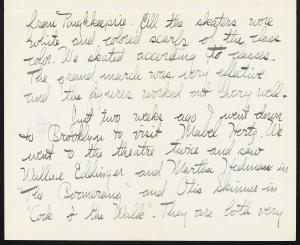 from Poughkeepsie. All the skaters wore
white and colored scarfs of the class
color. We skated according to classes.
The grand march was very effective
and the figures worked out very well.
Just two weeks ago I went down
to Brooklyn to visit Mabel Hertz. We
went to the theatre twice and saw
Wallace Eddinger and Martha Hedman in
"The Boomerang" and Otis Skinner in
"Cock o' the Walk". They are both very